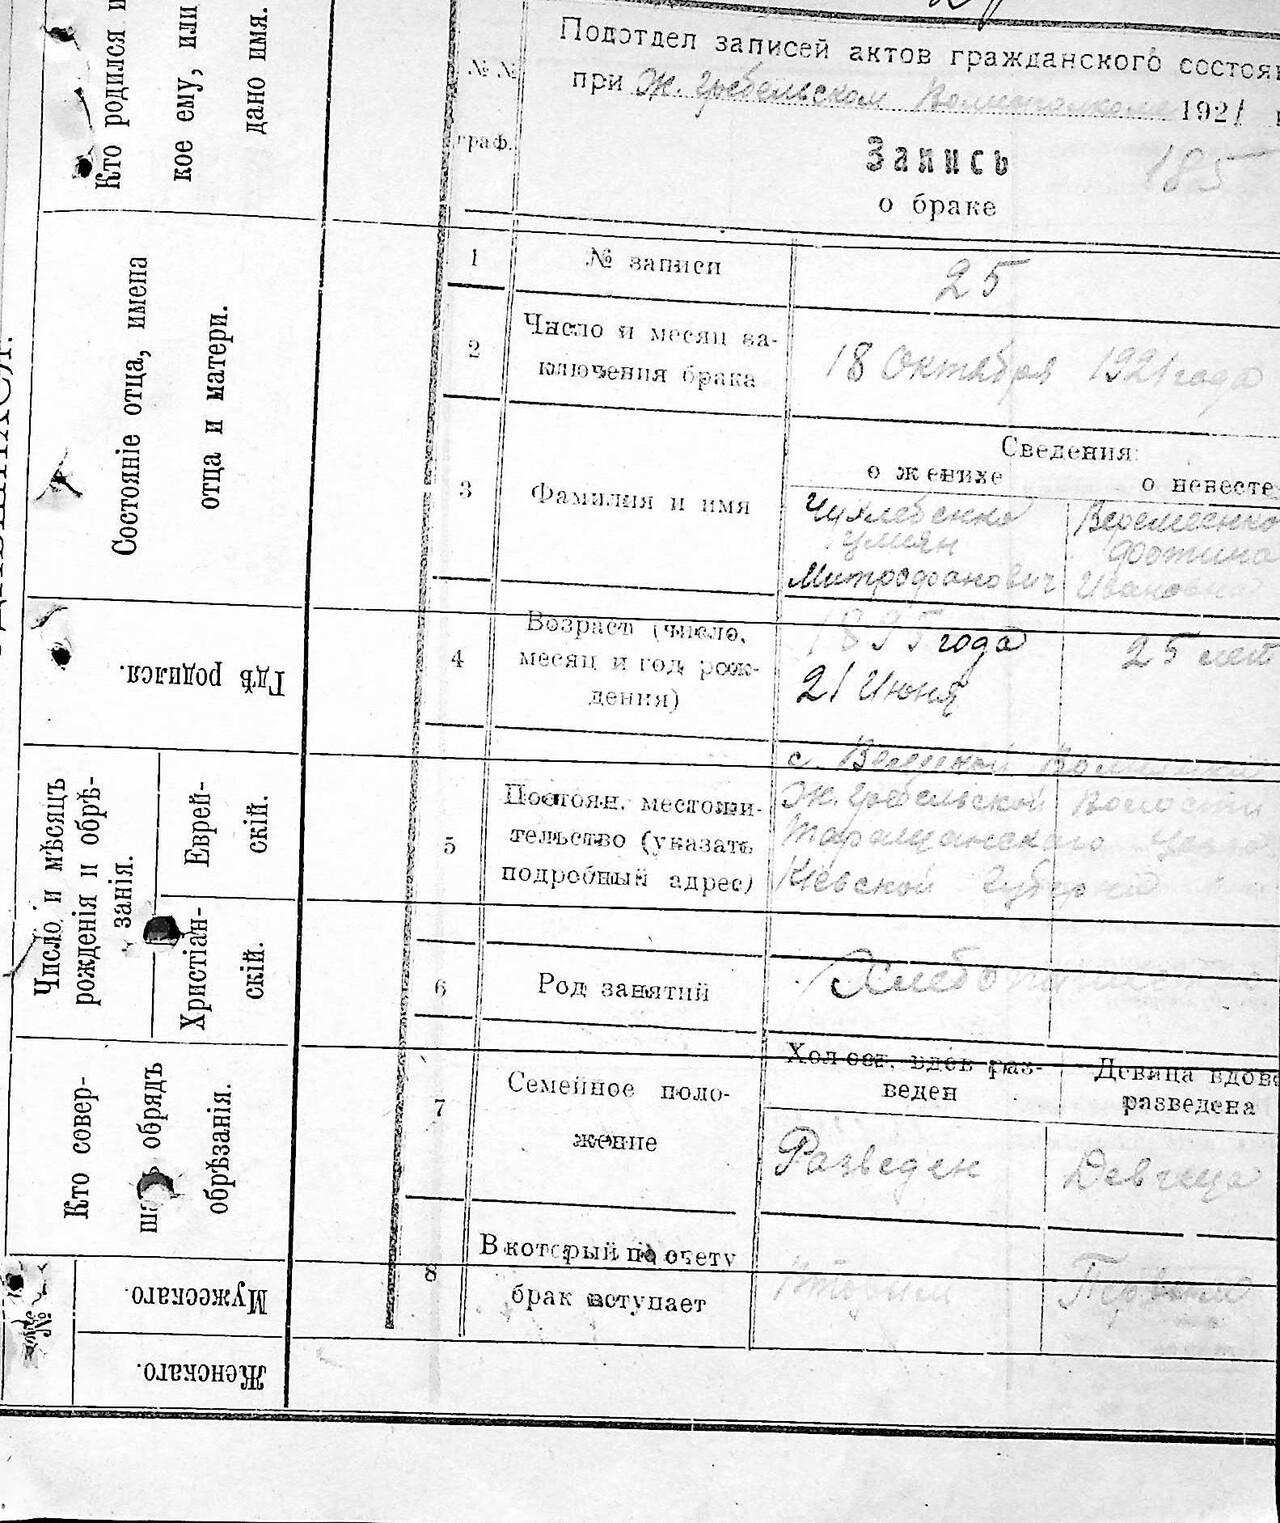 Кто родился и
кое ему, или
дано имя.
Состояніе отца, имена
отца и матери.
Гдѣ родился.
Число и мѣсяцъ
рожденія и обрѣ-
занія.
Еврей-
скій.
Христіан-
скій.
Кто совер-
обрядъ
обрѣзанія.
№
Мужескаго.
Женскаго.
№ №
граф.
Подотдел записей актов гражданского состоян
при Ж. Гребельском Волисполкоме 1921 г
Запись
185
о браке
1
№ записи
25
2
Число и месяц за-
ключения брака
18 Октября 1921 года
3
Фамилия и имя
Сведения:
о женихе
о невесте
Чухлебенко
Умиян
Митрофанович
Веремеенко
Фотина
Ивановна
4
Возраст (число,
месяц и год рож-
дения)
1895 года
21 Июня
25 лет
5
Постоян. местожи-
тельство (указать
подробный адрес)
с.
Ж. Гребельской Волости
Таращанского Уезда
Киевской Губернии
6
Род занятий
Хлебопашество
7
Семейное поло-
жение
Холост, вдов раз-
веден
Девица вдова
разведена
Разведен
Девица
8
В который по счету
брак вступает
Вторым
Первым